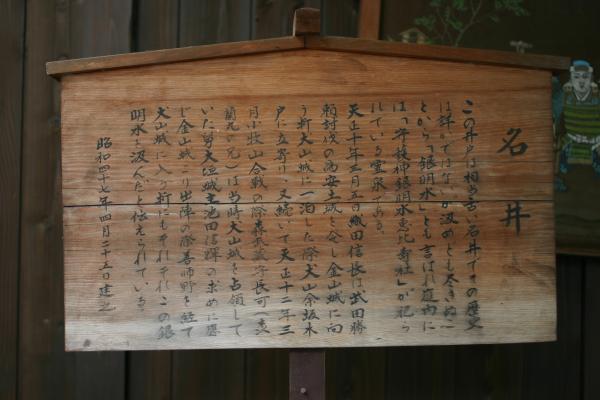 名井
この井戸は相当古い名井でその歴史
は詳かではないが汲めども尽きぬこ
とから「銀明水」とも言はれ庭内に
は「午後神銀明水恵比寿社」が祀ら
れている霊泉である。
天正十年三月五日織田信長は武田勝
頼討伐の為安土城を発し金山城に向
う折犬山城に一泊した際犬山余坂木
戸に立寄り、又続いて天正十二年三
月小牧山合戦の際森武蔵守長可（森
蘭丸の兄）は当時犬山城を占領して
いた岐阜大垣城主池田信輝の求めに應
じ金山城より出陣の際善師野を経て
犬山城に入る折にもそれぞれこの銀
明水を汲んだと伝えられている。
昭和四十七年四月二十五日建之